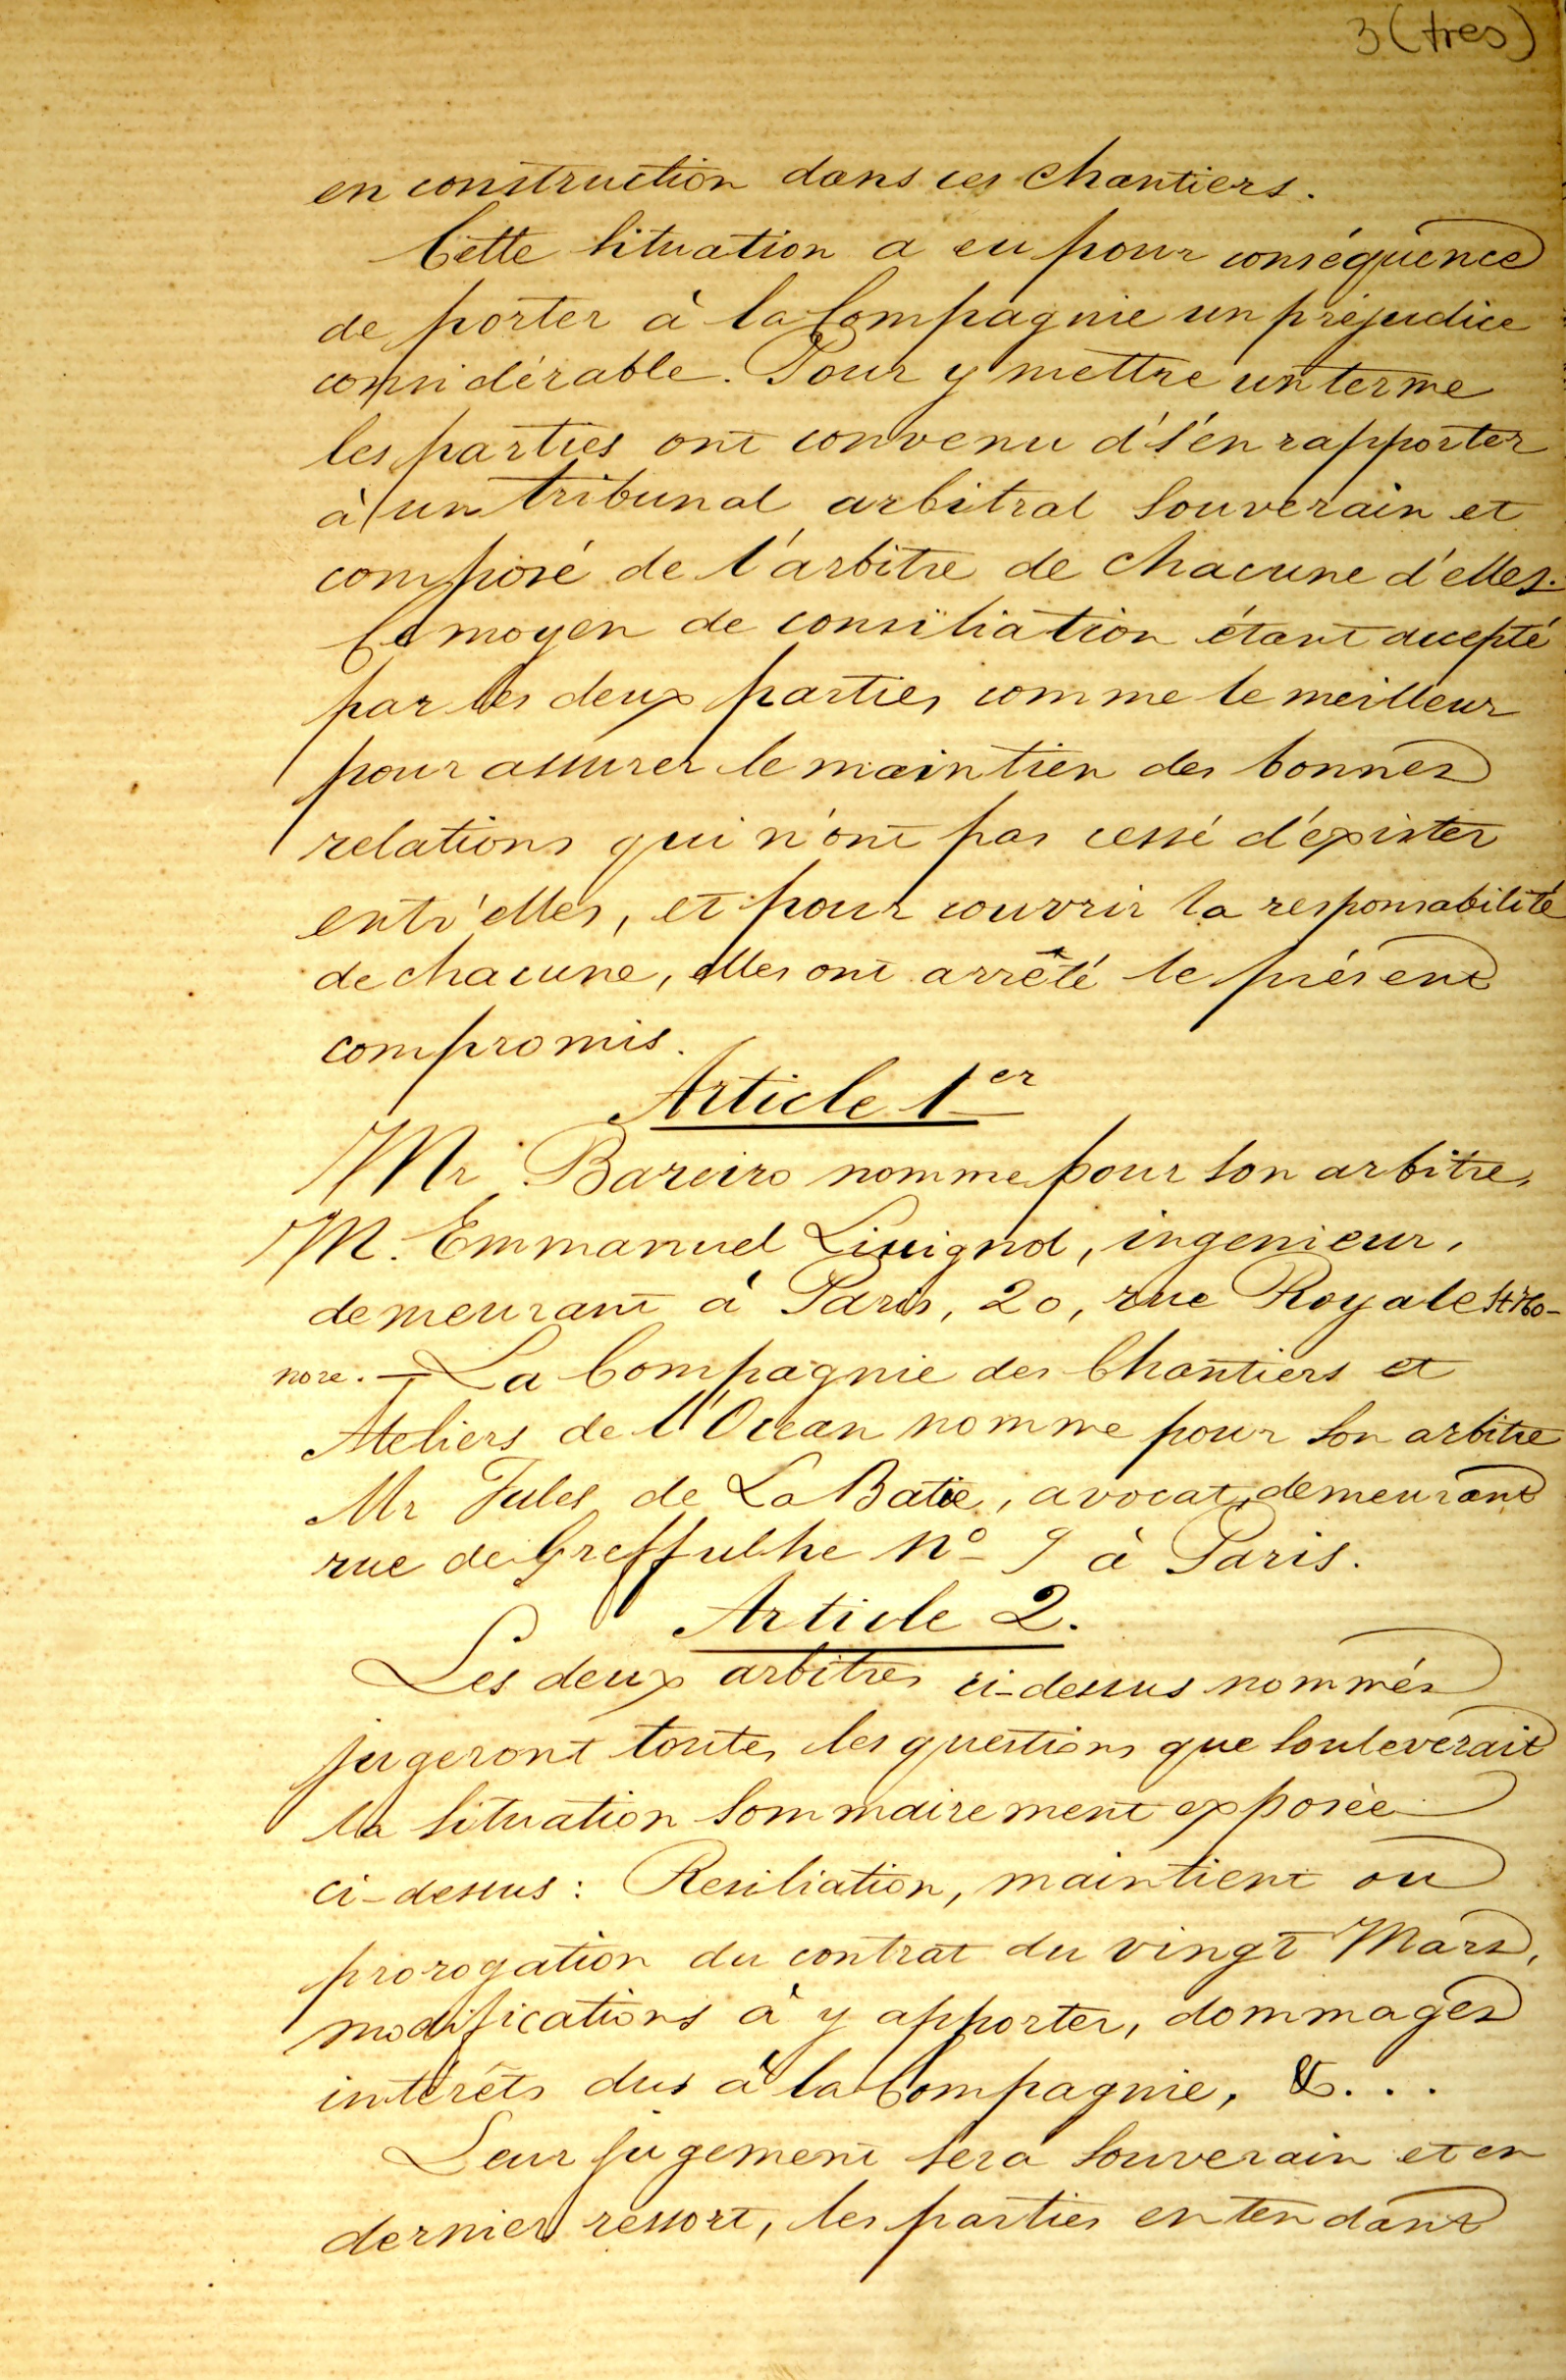 3 (tres)
en construction dans ces chantiers.
Cette situation a eu pour conséquence
de porter à la Compagnie un préjudice
considérable. Pour y mettre un terme
les parties ont convenu d's'en rapporter
à un tribunal arbitral souverain et
composé de l'arbitre de chacune d'elles.
Ce moyen de consiliation étant accepté
par les deux parties comme le meilleur
pour assurer le maintien des bonnes
relations qui n'ont pas cessé d'exister
entr'elles, et pour couvrir la responsabilité
de chacune, elles ont arrêté le présent
compromis.
Article 1er
Mr Bareiro nomme pour son arbitre,
M. Emmanuel Livignol, ingenieur,
demeurant à Paris, 20, rue Royale St Ho-
nore. — La Compagnie des Chantiers et
Ateliers de l'Ocean nomme pour son arbitre
Mr Jules de La Batie, avocat, demeurant
rue de Greffulhe No 9 à Paris.
Article 2.
Les deux arbitres ci-dessus nommés
jugeront toutes les questions que souleverait
la situation sommairement exposèe
ci-dessus: Resiliation, maintient ou
prorogation du contrat du vingt Mars,
modifications à y apporter, dommages
intérêts dus à la Compagnie, &. . .
Leur jugement sera souverain et en
dernier ressort, les parties entendant